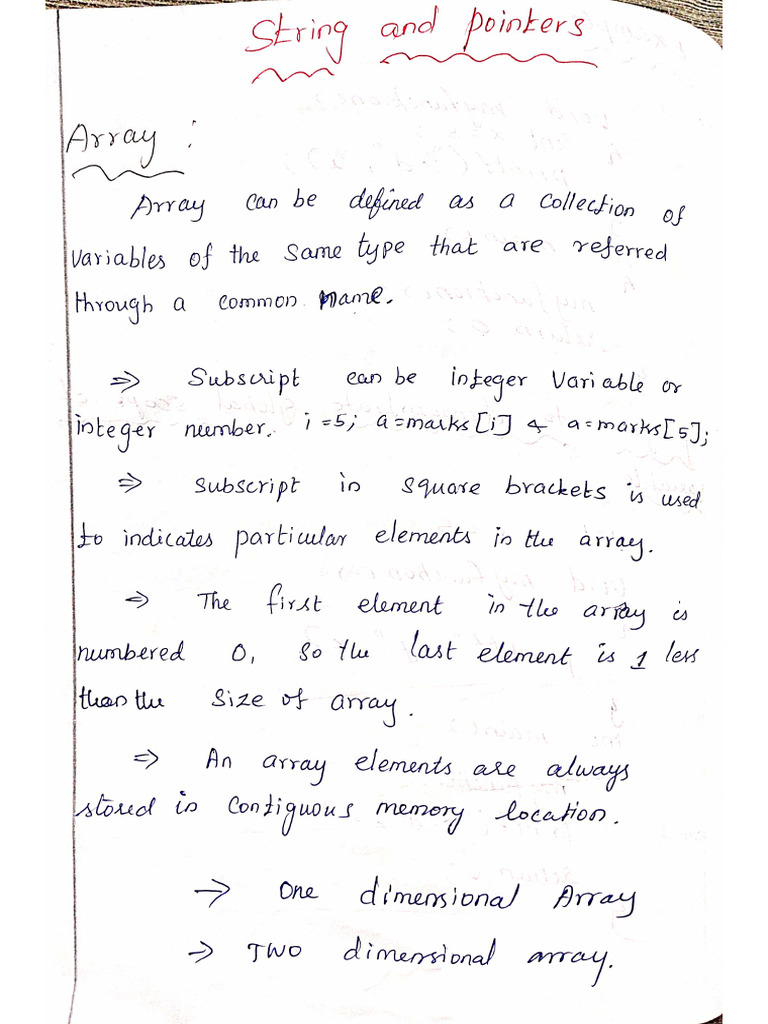 String and pointers
Array :
Array can be defined as a collection of
variables of the same type that are referred
through a common name.
⇒ Subscript can be integer variable or
integer number. i=5; a=marks[i] & a=marks[5];
⇒ subscript in square brackets is used
to indicates particular elements in the array.
⇒ The first element in the array is
numbered 0, so the last element is 1 less
than the size of array.
⇒ An array elements are always
stored in contiguous memory location.
→ One dimensional Array
→ TWO dimensional array.